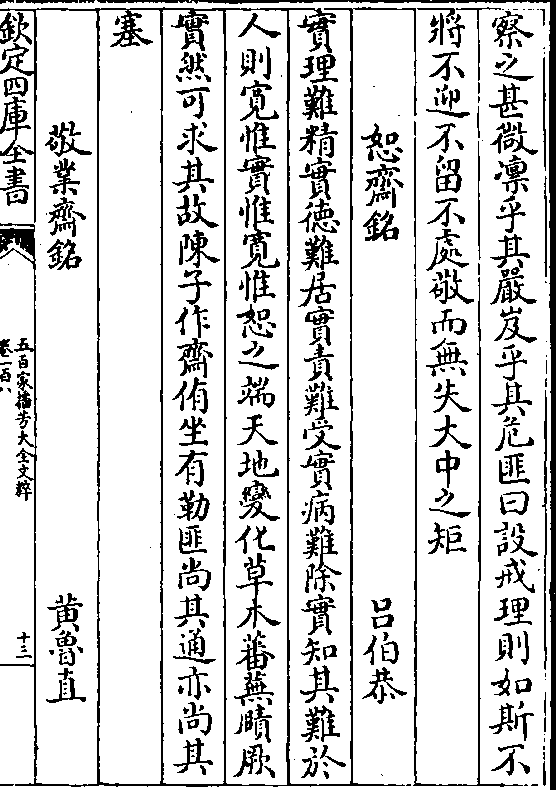 察之甚微凛乎其嚴岌乎其危匪曰設戒理則如斯不
將不迎不留不處敬而無失大中之矩
恕齋銘　吕伯恭
實理難精實德難居實責難受實病難除實知其難於
人則寛惟實惟寛惟恕之端天地變化草木蕃蕪賾厥
實然可求其故陳子作齋侑坐有勒匪尚其通亦尚其
塞
敬業齋銘　黄魯直
欽定四庫全書
五百家播芳大全文粹
卷一百八
十三